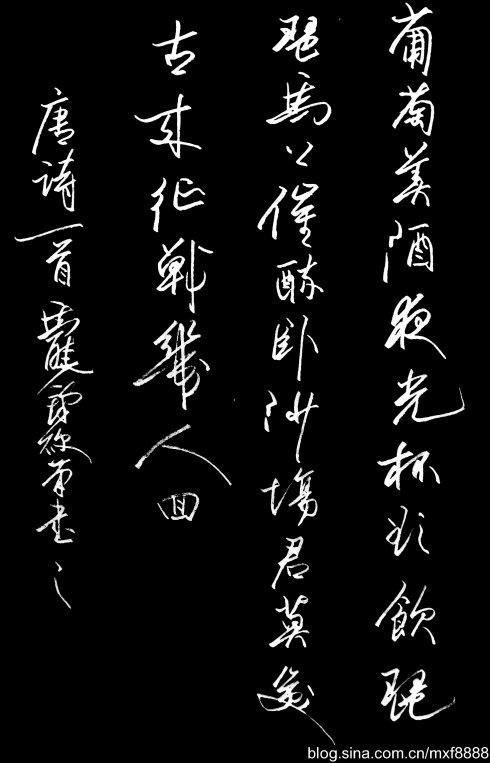 葡萄美酒夜光杯欲飲琵
琶馬上催醉臥沙場君莫笑
古來征戰幾人回
唐詩一首書之
blog.sina.com.cn/mxf8888